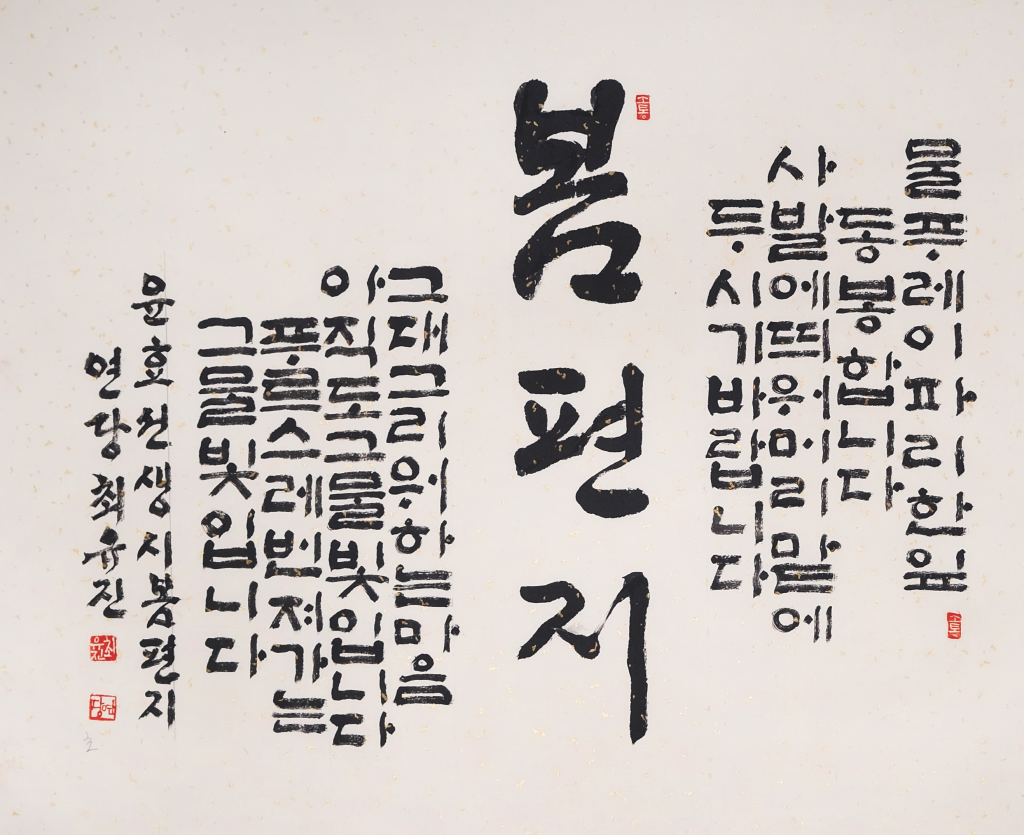 물푸레이파리한잎
동봉합니다
사발에띄워머리맡에
두시기바랍니다
봄편지
그대그리워하는마음
아직도그물빛입니다
푸르스레번져가는
그물빛입니다
윤효선생시봄편지
연당최유진